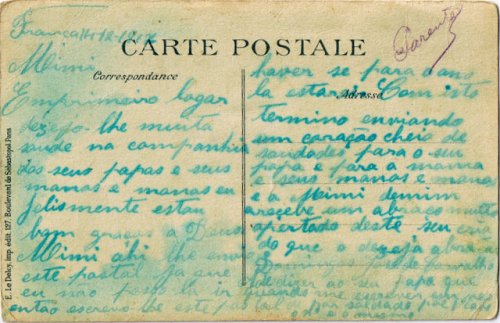 CARTE POSTALE
Parente
Correspondance
Adresse
Mimi
Emprimeiro logar
dezejo-lhe muita
saude na companhia
dos seus papas e seus
manos e manas eu
felismente estou
bom graças a Deus
Mimi ahi lhe
este postal Ja que
eu não posso ir
então escrevo-lhe este
haver se para
la estar Com isto
termino enviando
um coração cheio de
saudades para o seu
papa e para a mama
e seus manos e manas
e a Mimi de mim
recebe um abraço muito
apertado deste seu
do que o dezeja
ao seu papa que
quando me escrever
E. Le Deley, imp. édit. 127, Boulevard de Sébastopol Paris